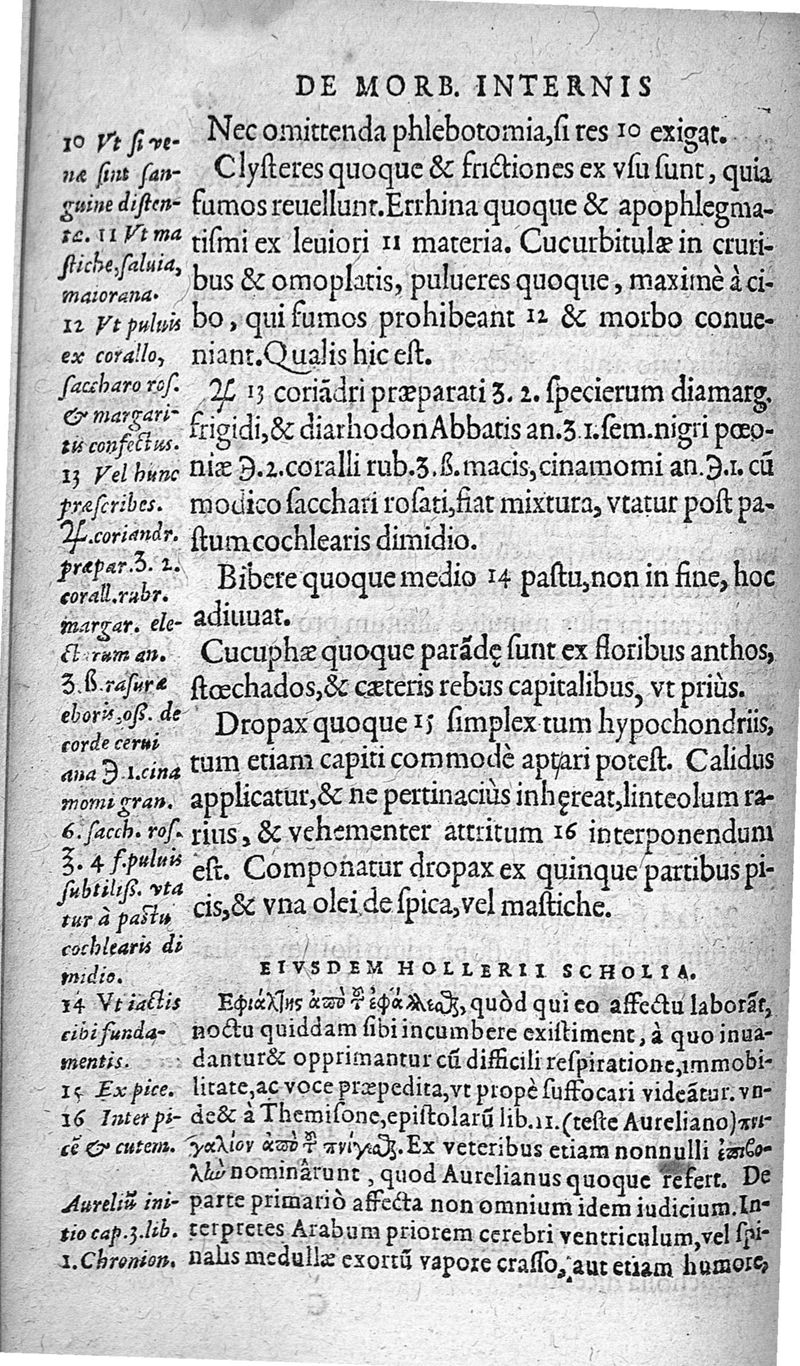 DE MORB. INTERNIS
10 Vt si ve-
næ sint san-
guine disten-
tæ. 11 Vt ma
stiche, saluia,
maiorana.
12 Vt puluis
ex corallo,
saccharo ros.
& margari-
tis confectus.
13 Vel hunc
præscribes.
♃.coriandr.
præpar.ʒ. 2.
corall.rubr.
margar. ele-
ctorum an.
ʒ.ß.rasuræ
eboris,oß. de
corde cerui
ana ℈.1.cina
momi gran.
6. sacch. ros.
℥. 4 f.puluis
subtiliß. vta
tur à pastu
cochlearis di
midio.
14 Vt iactis
cibi funda-
mentis.
15 Ex pice.
16 Inter pi-
cē & cutem.
Aureliū ini-
tio cap.3.lib.
1.Chronion.
Nec omittenda phlebotomia,si res 10 exigat.
Clysteres quoque & frictiones ex vsu sunt, quia
fumos reuellunt.Errhina quoque & apophlegma-
tismi ex leuiori 11 materia. Cucurbitulæ in cruri-
bus & omoplatis, pulueres quoque, maximè à ci-
bo, qui fumos prohibeant 12 & morbo conue-
niant.Qualis hic est.
♃ 13 coriādri præparati ʒ. 2. specierum diamarg.
frigidi,& diarhodon Abbatis an.ʒ.1.sem.nigri pœo-
niæ ℈.2.coralli rub.ʒ.ß.macis,cinamomi an.℈.1. cū
modico sacchari rosati,fiat mixtura, vtatur post pa-
stum cochlearis dimidio.
Bibere quoque medio 14 pastu,non in fine, hoc
adiuuat.
Cucuphæ quoque parādę sunt ex floribus anthos,
stœchados,& cæteris rebus capitalibus, vt priùs.
Dropax quoque 15 simplex tum hypochondriis,
tum etiam capiti commodè aptari potest. Calidus
applicatur,& ne pertinaciùs inhęreat,linteolum ra-
rius, & vehementer attritum 16 interponendum
est. Componatur dropax ex quinque partibus pi-
cis,& vna olei de spica,vel mastiche.
EIVSDEM HOLLERII SCHOLIA.
Εφιάλτης ἀπὸ τοῦ ἐφάλλεσθαι, quòd qui eo affectu laborāt,
noctu quiddam sibi incumbere existiment, à quo inua-
dantur& opprimantur cū difficili respiratione,immobi-
litate,ac voce præpedita,vt propè suffocari videātur. vn-
de& à Themisone,epistolarū lib.11.(teste Aureliano)πνι-
γαλίον ἀπὸ τοῦ πνίγεσθαι. Ex veteribus etiam nonnulli ἐπιβο-
λὴν nominârunt, quod Aurelianus quoque refert. De
parte primariò affecta non omnium idem iudicium.In-
terpretes Arabum priorem cerebri ventriculum,vel spi-
nalis medullæ exortū vapore crasso, aut etiam humore,